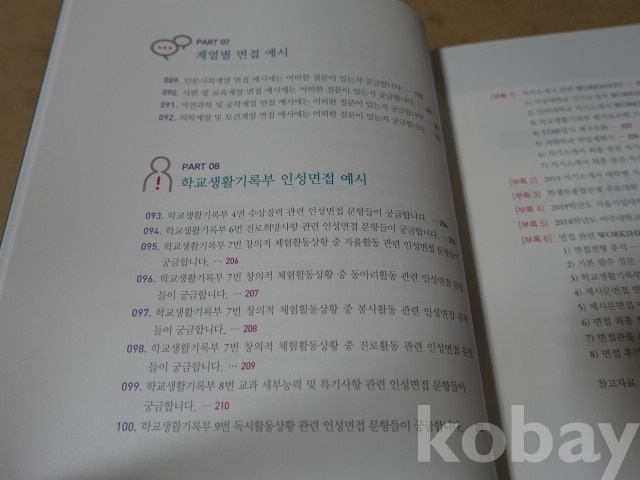 PART 07
계열별 면접 예시
089. 인문사회계열 면접 예시에는 어떠한 질문이 있는지 궁금합니다.
090. 사범 및 교육계열 면접 예시에는 어떠한 질문이 있는지 궁금합니다.
091. 자연과학 및 공학계열 면접 예시에는 어떠한 질문이 있는지 궁금합니다.
092. 의학계열 및 보건계열 면접 예시에는 어떠한 질문이 있는지 궁금합니다.
PART 08
학교생활기록부 인성면접 예시
093. 학교생활기록부 4번 수상경력 관련 인성면접 문항들이 궁금합니다.
094. 학교생활기록부 6번 진로희망사항 관련 인성면접 문항들이 궁금합니다.
095. 학교생활기록부 7번 창의적 체험활동상황 중 자율활동 관련 인성면접 문항들이
궁금합니다. … 206
096. 학교생활기록부 7번 창의적 체험활동상황 중 동아리활동 관련 인성면접 문항
들이 궁금합니다. … 207
097. 학교생활기록부 7번 창의적 체험활동상황 중 봉사활동 관련 인성면접 문항
들이 궁금합니다. … 208
098. 학교생활기록부 7번 창의적 체험활동상황 중 진로활동 관련 인성면접 문항
들이 궁금합니다. … 209
099. 학교생활기록부 8번 교과 세부능력 및 특기사항 관련 인성면접 문항들이
궁금합니다. … 210
100. 학교생활기록부 9번 독서활동상황 관련 인성면접 문항들이 궁금합니다.
[부록
4) STAR
[부록 2] 2019 자기소개서 대학별
[부록 3] 학생부종합전형 주요대학
[부록 4] 2019학년도 서울시립대학
[부록 5] 2018학년도 아주대학
[부록 6] 면접 관련 WORKSH
1) 면접전형 분석
2) 기본 필수 질문
3) 학교생활기록
4) 제시문면접
5) 제시문면접
6) 면접 최종
7) 면접관을
8) 면접 후기
참고자료
kobay